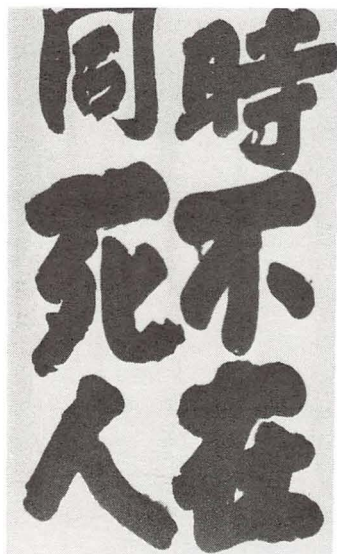 時不在
同死人